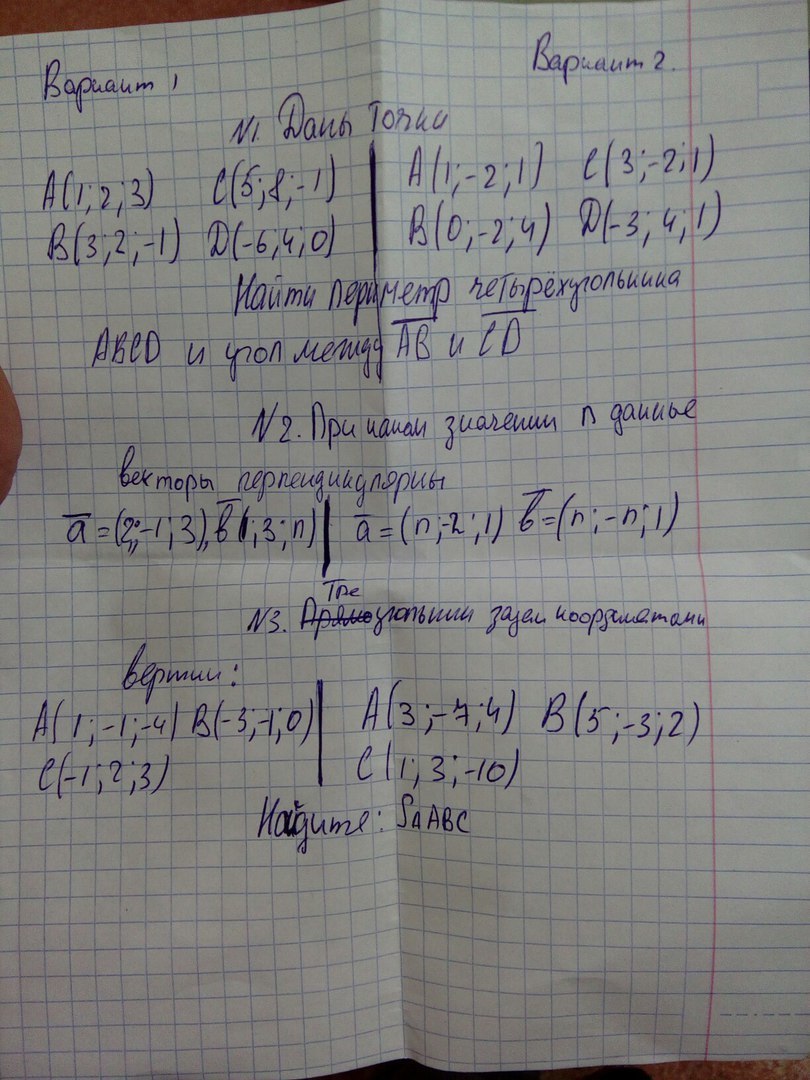 Вариант 1
Вариант 2.
N1. Даны точки
A(1; 2; 3) C(5; 8; -1)
B(3; 2; -1) D(-6; 4; 0)
A(1; -2; 1) C(3; -2; 1)
B(0; -2; 4) D(-3; 4; 1)
Найти периметр четырёхугольника
ABCD и угол между AB и CD
N2. При каком значении n данные
векторы перпендикулярны
a = (2; -1; 3), b(1; 3; n)
a = (n; -2; 1) b = (n; -n; 1)
Тре
N3. Прямоугольник задан координатами
вершин:
A(1; -1; -4) B(-3; -1; 0)
C(-1; 2; 3)
A(3; -7; 4) B(5; -3; 2)
C(1; 3; -10)
Найдите: SΔABC